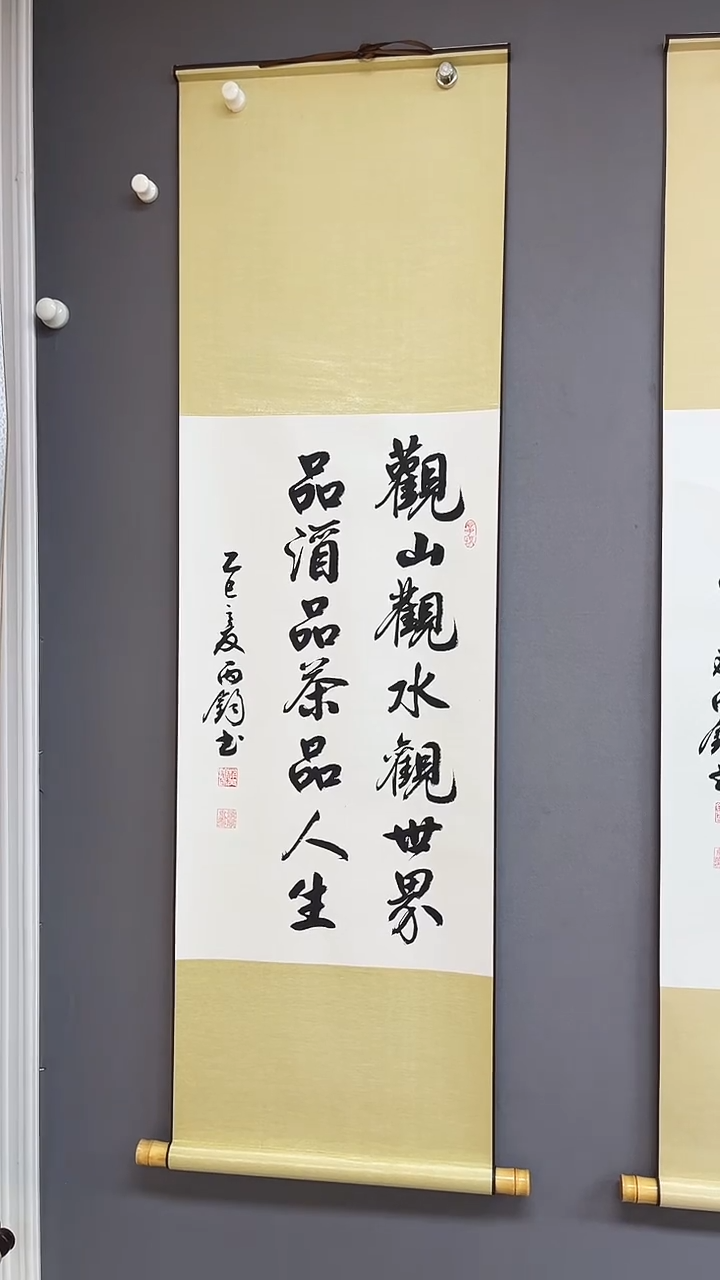 觀山觀水觀世界
品酒品茶品人生
乙巳之夏丙鈞书